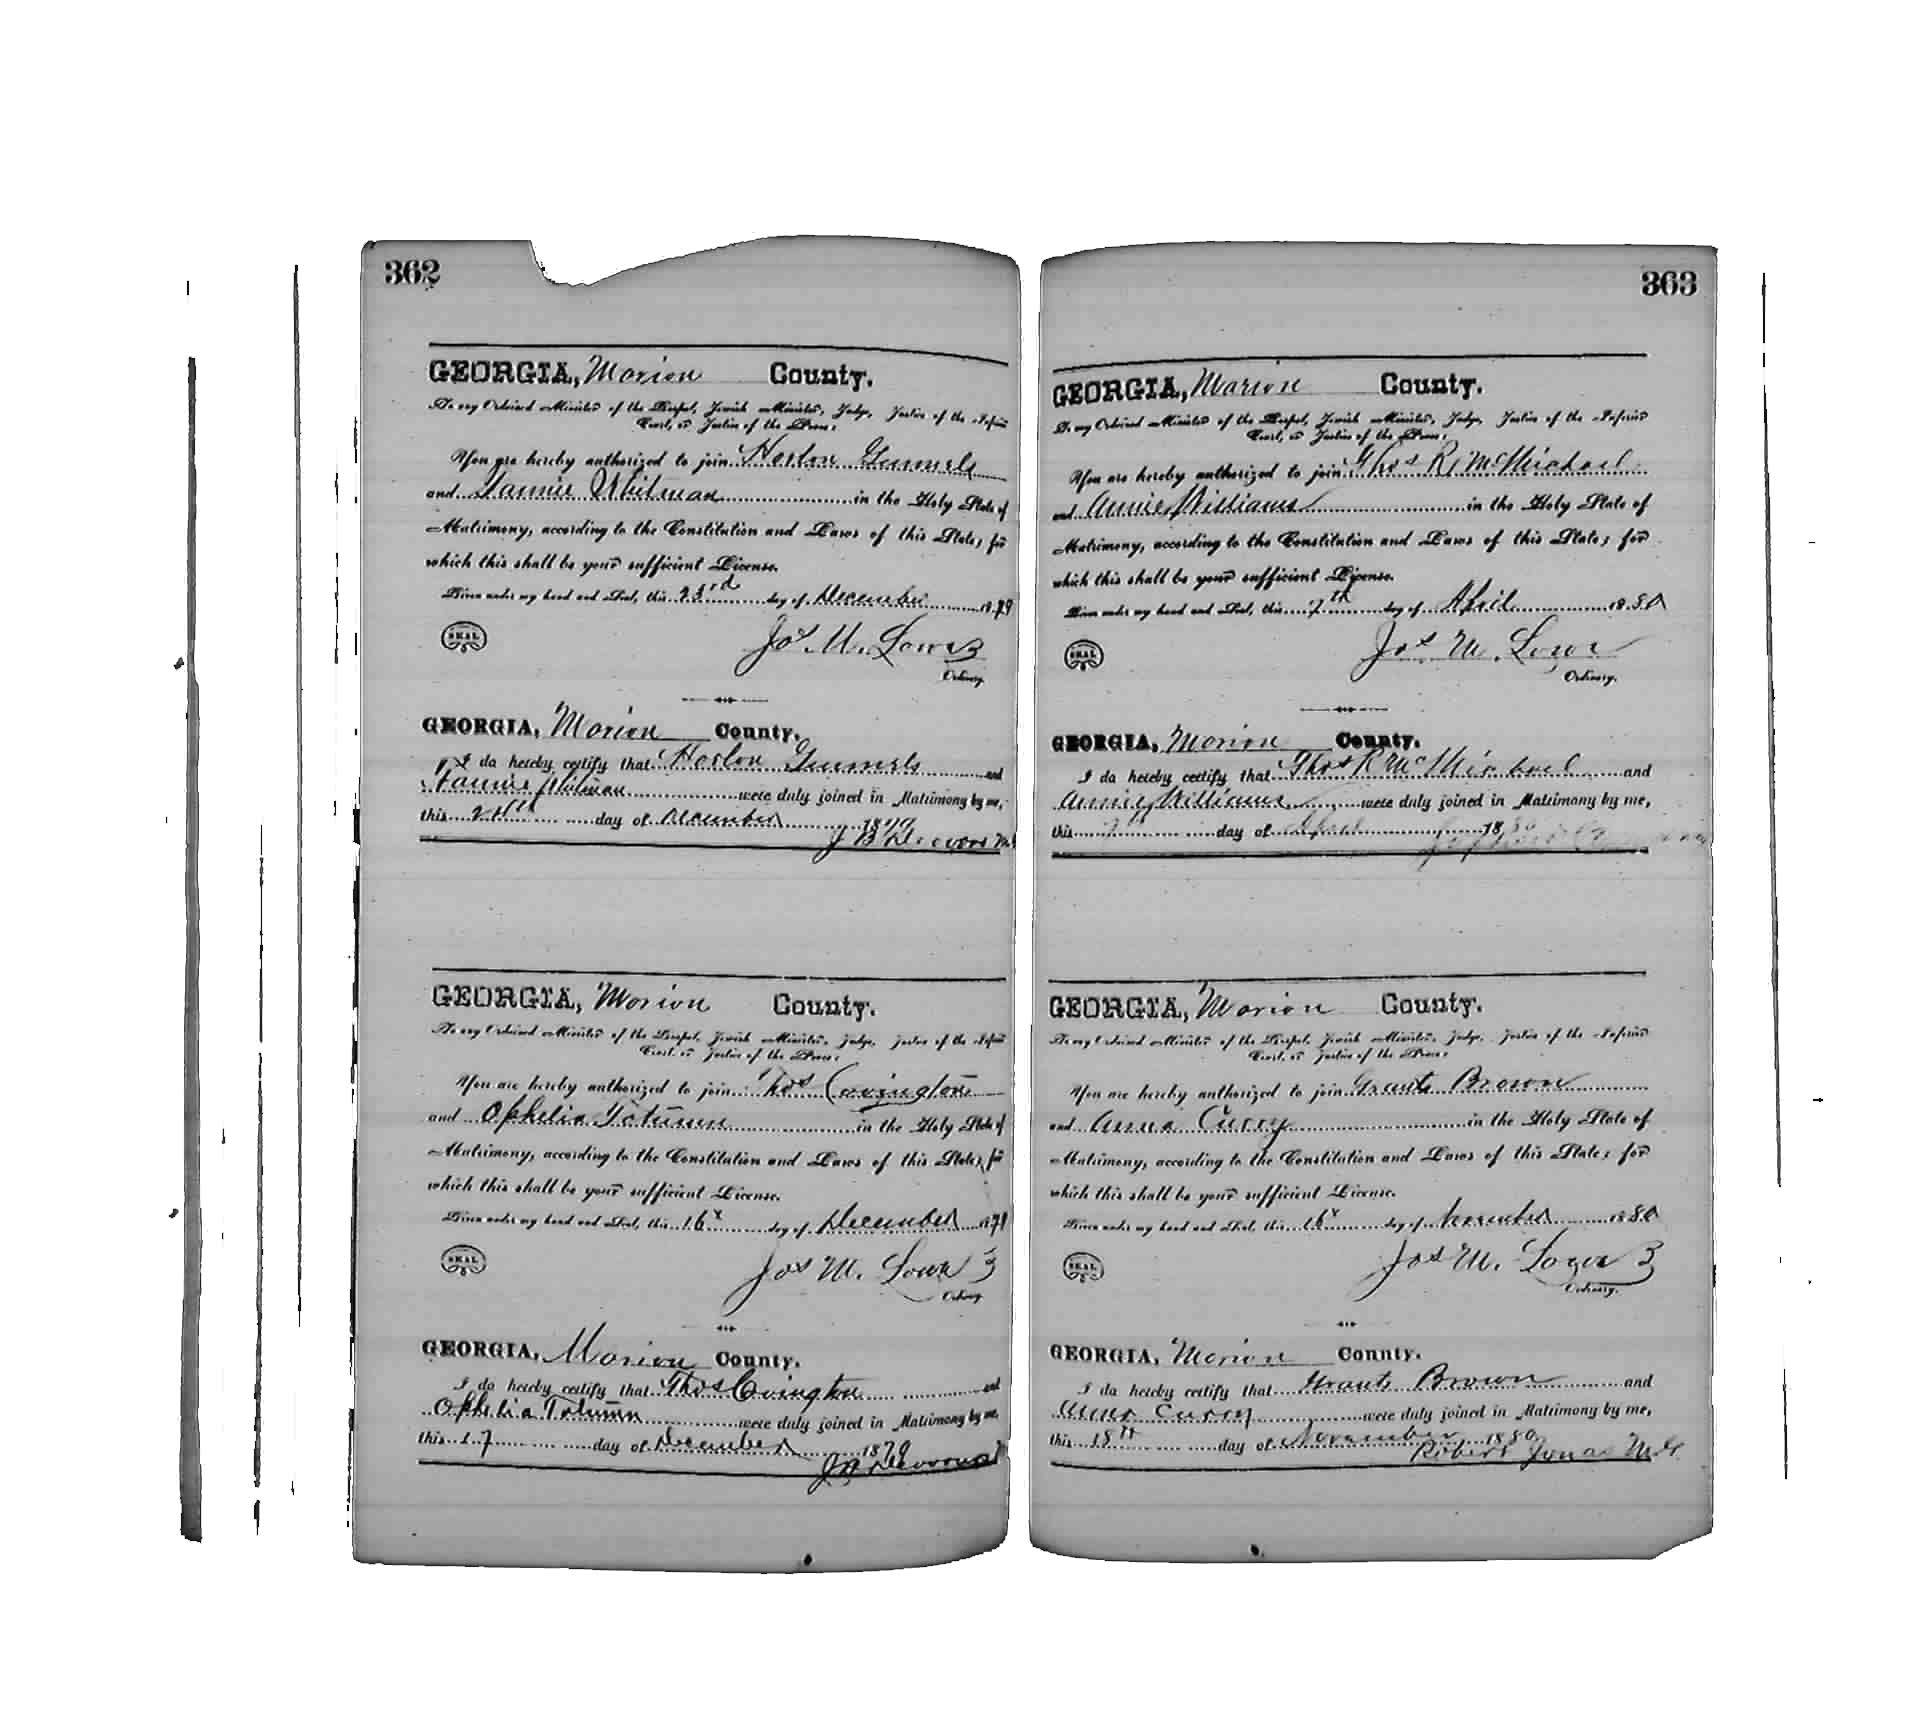 362
GEORGIA, Marion County.
To any Ordained Minister of the Gospel, Jewish Minister, Judge, Justice of the Inferior
Court, or Justice of the Peace:
You are hereby authorized to join Horton Gunnels
and Fannie Whitman in the Holy State of
Matrimony, according to the Constitution and Laws of this State; for
which this shall be your sufficient License.
Given under my hand and Seal, this 23rd day of December 1879
SEAL
Jos M. Lowe
Ordinary.
GEORGIA, Marion County.
I do hereby certify that Horton Gunnels and
Fannie Whitman were duly joined in Matrimony by me,
this 24th day of December 1879
J B
GEORGIA, Marion County.
To any Ordained Minister of the Gospel, Jewish Minister, Judge, Justice of the Inferior
Court, or Justice of the Peace:
You are hereby authorized to join Thos Covington
and Ophelia Totumn in the Holy State of
Matrimony, according to the Constitution and Laws of this State; for
which this shall be your sufficient License.
Given under my hand and Seal, this 16x day of December 187
SEAL
Jos M. Lowe
Ordinary
GEORGIA, Marion County.
I do hereby certify that Thos Covington and
Ophelia Totumn were duly joined in Matrimony by me,
this 17 day of December 1879
363
GEORGIA, Marion County.
To any Ordained Minister of the Gospel, Jewish Minister, Judge, Justice of the Inferior
Court, or Justice of the Peace:
You are hereby authorized to join Thos R. McMichael
and Annie Williams in the Holy State of
Matrimony, according to the Constitution and Laws of this State; for
which this shall be your sufficient License.
Given under my hand and Seal, this 7th day of April 1880
SEAL
Jos M. Lowe
Ordinary.
GEORGIA, Marion County.
I do hereby certify that Thos R McMichael and
Annie Williams were duly joined in Matrimony by me,
this 7 day of April 1880
GEORGIA, Marion County.
To any Ordained Minister of the Gospel, Jewish Minister, Judge, Justice of the Inferior
Court, or Justice of the Peace:
You are hereby authorized to join Grant Brown
and Anna Curry in the Holy State of
Matrimony, according to the Constitution and Laws of this State; for
which this shall be your sufficient License.
Given under my hand and Seal, this 16x day of November 1880
SEAL
Jos M. Lowe
Ordinary.
GEORGIA, Marion County.
I do hereby certify that Grant Brown and
Anna Curry were duly joined in Matrimony by me,
this 18th day of November 1880
Robert Jonas M.G.